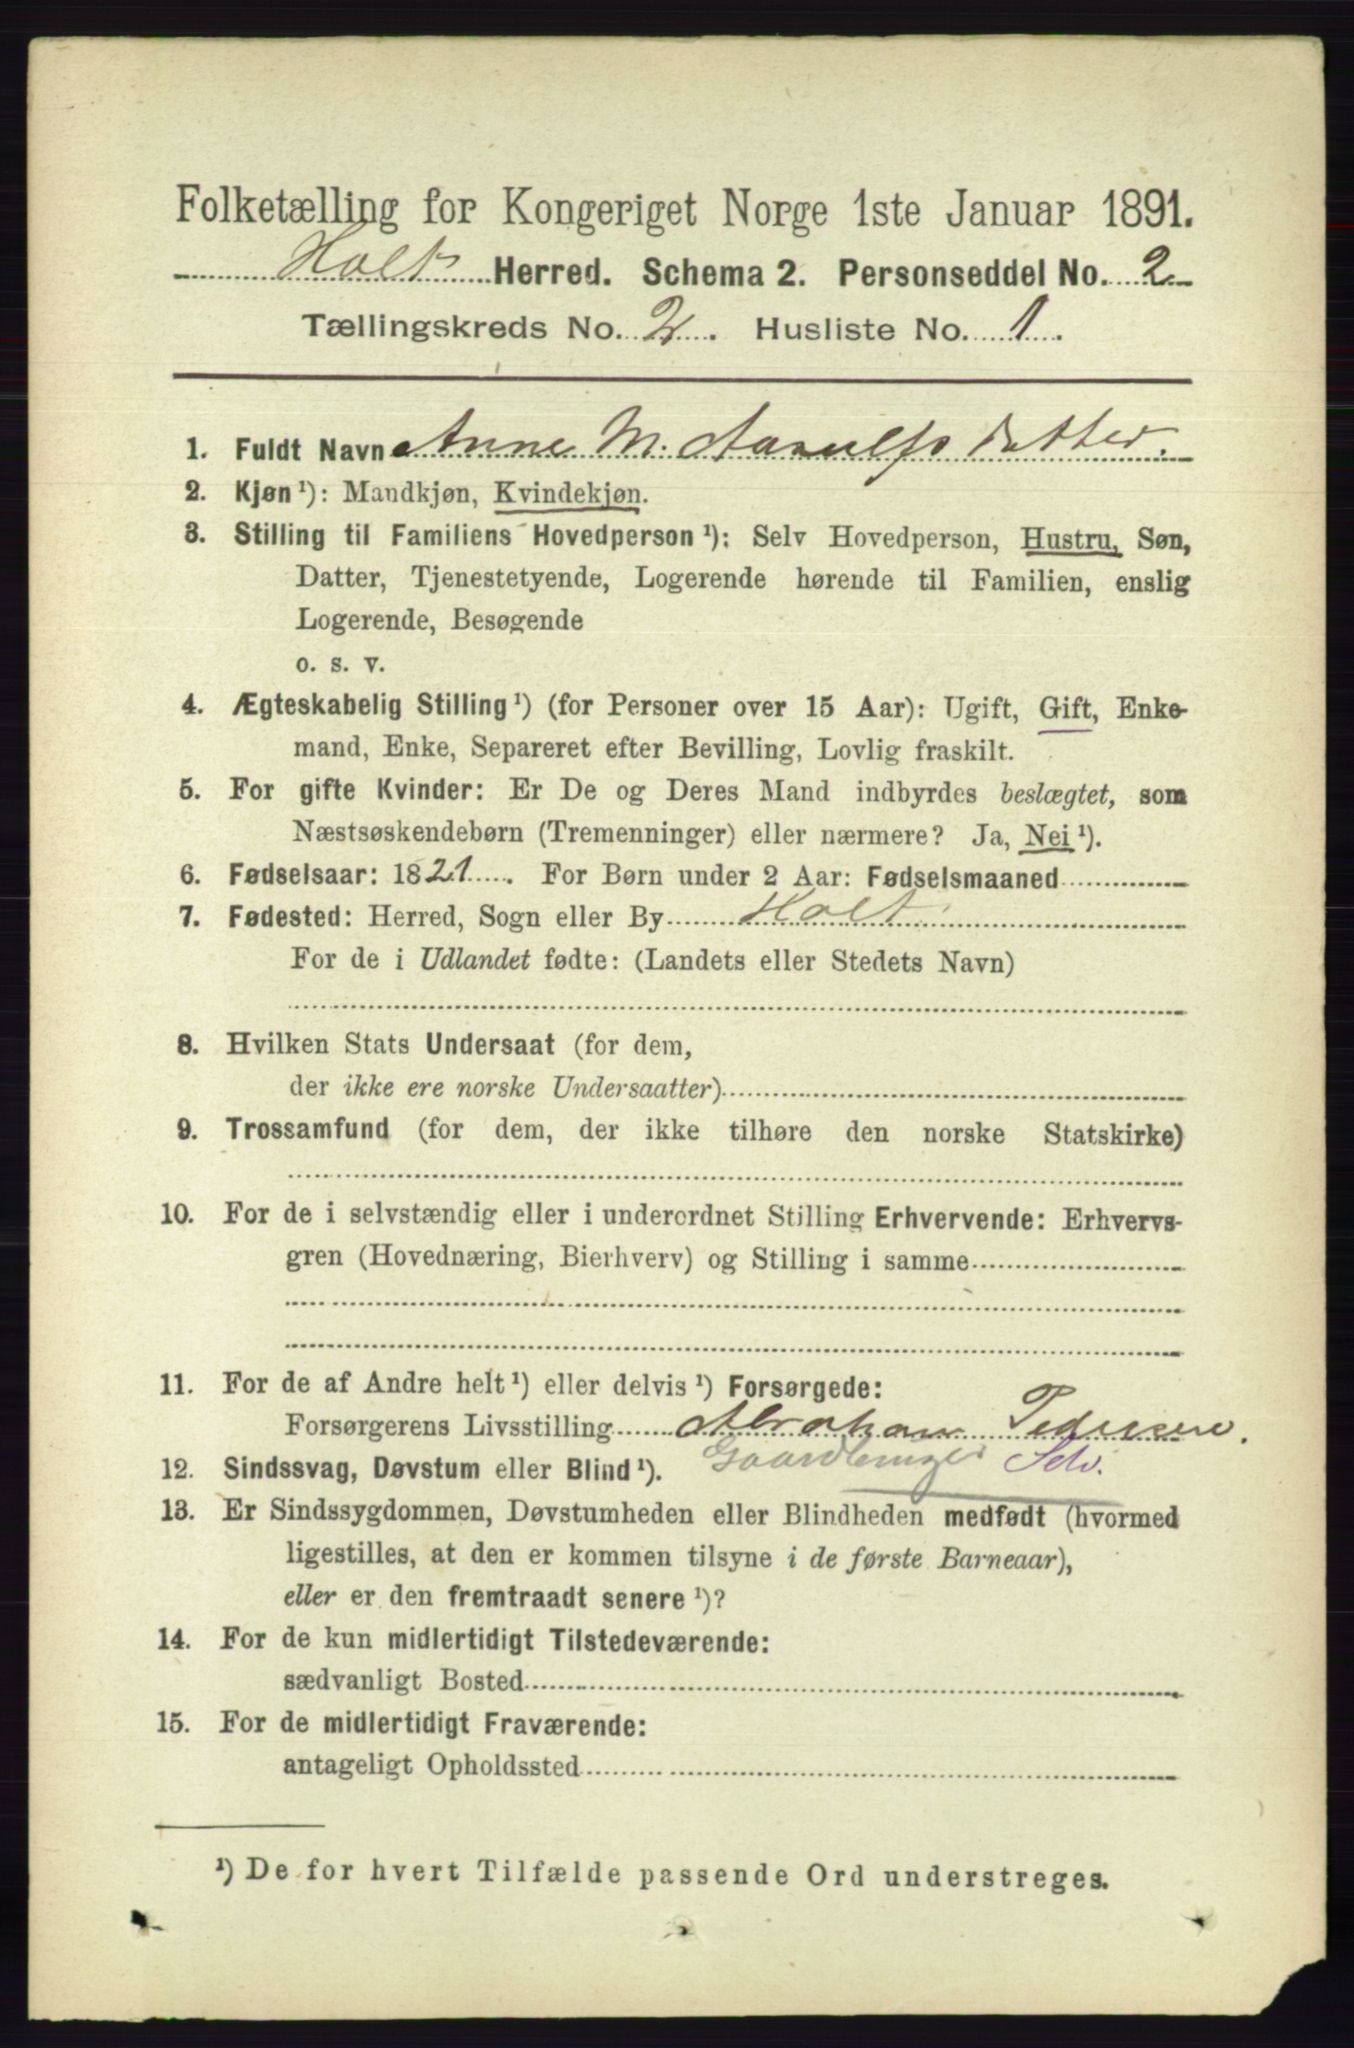 Folketælling for Kongeriget Norge 1ste Januar 1891.
Holt Herred. Schema 2. Personseddel No. 2
Tællingskreds No. 2. Husliste No. 1.
1. Fuldt Navn Anne M. Aanulfsdatter.
2. Kjøn¹): Mandkjøn, Kvindekjøn.
3. Stilling til Familiens Hovedperson¹): Selv Hovedperson, Hustru, Søn,
Datter, Tjenestetyende, Logerende hørende til Familien, enslig
Logerende, Besøgende
o. s. v.
4. Ægteskabelig Stilling¹) (for Personer over 15 Aar): Ugift, Gift, Enke-
mand, Enke, Separeret efter Bevilling, Lovlig fraskilt.
5. For gifte Kvinder: Er De og Deres Mand indbyrdes beslægtet, som
Næstsøskendebørn (Tremenninger) eller nærmere? Ja, Nei¹).
6. Fødselsaar: 1821. For Børn under 2 Aar: Fødselsmaaned
7. Fødested: Herred, Sogn eller By Holt
For de i Udlandet fødte: (Landets eller Stedets Navn)
8. Hvilken Stats Undersaat (for dem,
der ikke ere norske Undersaatter)
9. Trossamfund (for dem, der ikke tilhøre den norske Statskirke)
10. For de i selvstændig eller i underordnet Stilling Erhvervende: Erhvervs-
gren (Hovednæring, Bierhverv) og Stilling i samme
11. For de af Andre helt¹) eller delvis¹) Forsørgede:
Forsørgerens Livsstilling Abraham Pedersen.
Gaardbruger Selv.
12. Sindssvag, Døvstum eller Blind¹).
13. Er Sindssygdommen, Døvstumheden eller Blindheden medfødt (hvormed
ligestilles, at den er kommen tilsyne i de første Barneaar),
eller er den fremtraadt senere¹)?
14. For de kun midlertidigt Tilstedeværende:
sædvanligt Bosted
15. For de midlertidigt Fraværende:
antageligt Opholdssted
¹) De for hvert Tilfælde passende Ord understreges.